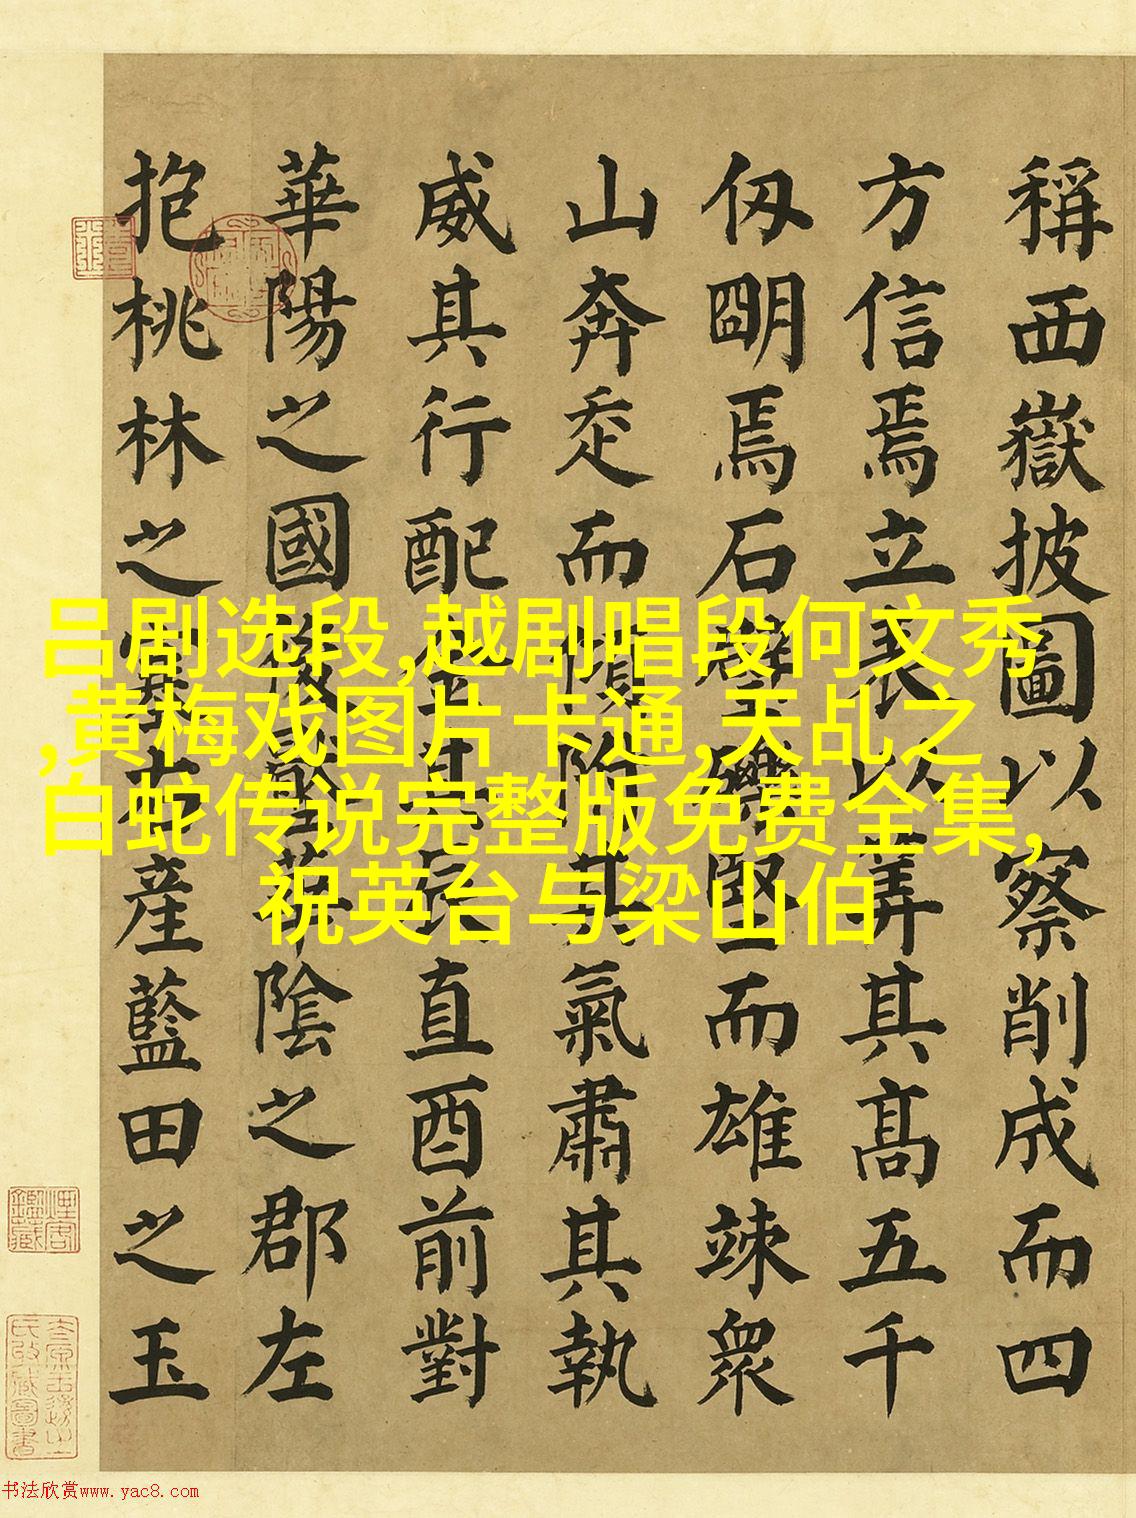 稱西嶽披圖以察削成而四
方信焉立表以筭其髙五千
仭朙焉石壁竪而雄竦衆
山奔走而傾附其氣肅其埶
威其行配金其辰直酉前對
華陽之國後壓華陰之郡左
抱桃林之塞右産藍田之玉
吕剧选段,越剧唱段何文秀
,黄梅戏图片卡通,天乩之
白蛇传说完整版免费全集,
祝英台与梁山伯
书法欣赏www.yac8.com